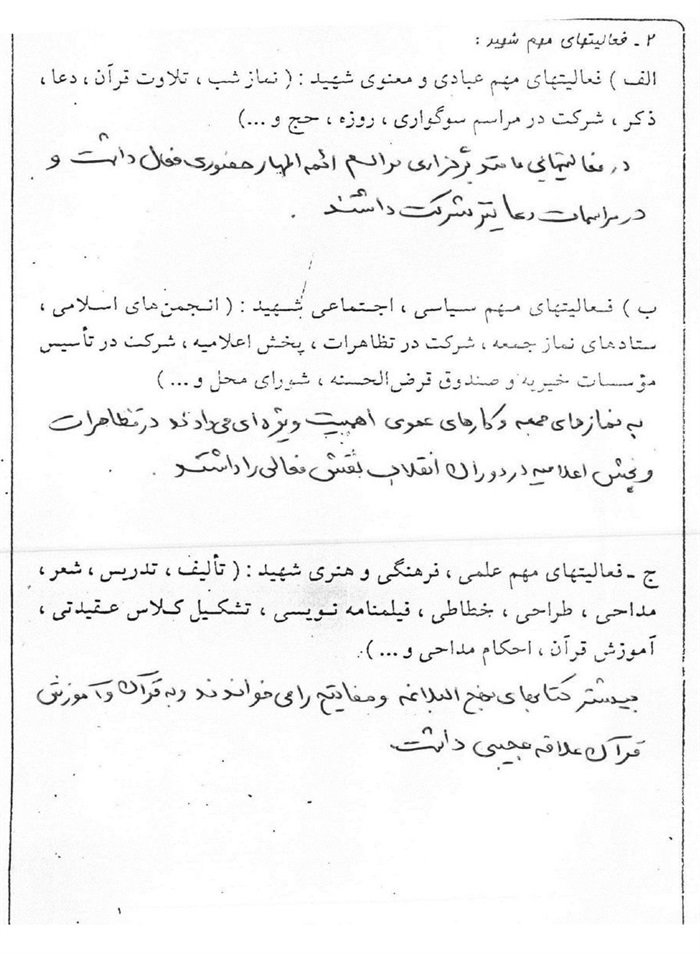 ۲ - فعالیتهای مهم شهید :
الف ) فعالیتهای مهم عبادی و معنوی شهید : ( نماز شب ، تلاوت قرآن ، دعا ،
ذکر ، شرکت در مراسم سوگواری ، روزه ، حج و ...)
در فعالیتهایی مانند برگزاری مراسم ائمه اطهار حضوری فعال داشت و
در مراسمات دعا نیز شرکت داشتند .
ب ) فعالیتهای مهم سیاسی ، اجتماعی شهید : ( انجمن‌های اسلامی ،
ستادهای نماز جمعه ، شرکت در تظاهرات ، پخش اعلامیه ، شرکت در تأسیس
مؤسسات خیریه و صندوق قرض‌الحسنه ، شورای محل و ... )
به نمازهای جمعه و کارهای عمومی اهمیت ویژه ای می دادند در تظاهرات
و پخش اعلامیه در دوران انقلاب نقش فعالی را داشتند .
ج - فعالیتهای مهم علمی ، فرهنگی و هنری شهید : ( تألیف ، تدریس ، شعر ،
مداحی ، طراحی ، خطاطی ، فیلمنامه نویسی ، تشکیل کلاس عقیدتی ،
آموزش قرآن ، احکام مداحی و ... ).
بیشتر کتابهای نهج البلاغه و مفاتیح را می خواندند و به قرآن و آموزش
قرآن علاقه عجیبی داشت